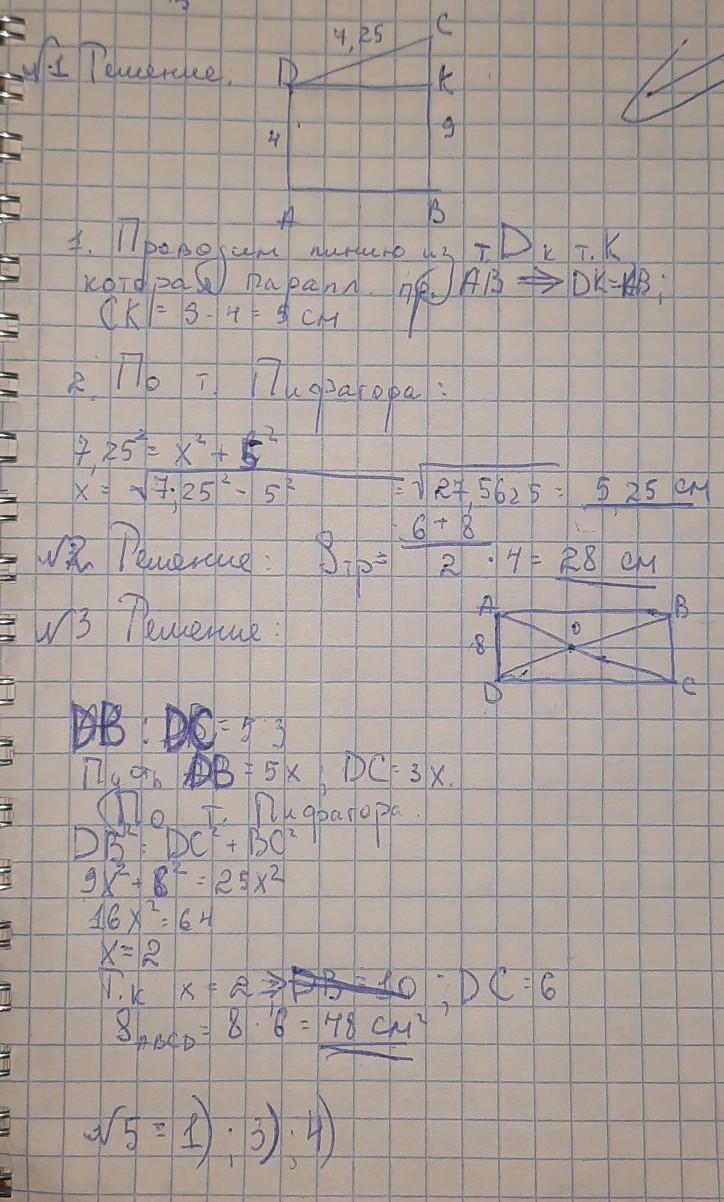 №1 Решение:
7,25
C
D
K
4
9
A
B
1. Проводим линию из т. D к т. K
которая паралл. пр. AB ⇒ DK=AB;
CK = 9-4 = 5 см
2. По т. Пифагора:
7,25² = x² + 5²
x = √7,25² - 5² = √27,5625 = 5,25 см
№2. Решение: Sтр = 6+8/2 · 4 = 28 см
№3 Решение:
A
B
O
8
D
C
DB : DC = 5 : 3
Пусть DB = 5x ; DC = 3x.
По т. Пифагора.
DB² = DC² + BC²
9x² + 8² = 25x²
16x² = 64
x = 2
Т.к x = 2 ⇒ DB = 10 ; DC = 6
SABCD = 8 · 6 = 48 см²
№5 = 1) ; 3) ; 4)